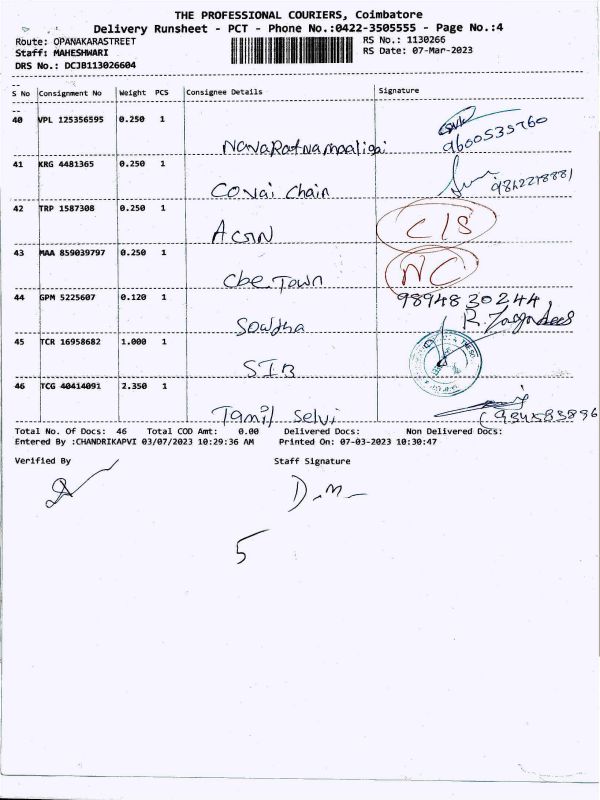 THE PROFESSIONAL COURIERS, Coimbatore
Delivery Runsheet - PCT - Phone No.:0422-3505555 - Page No.:4
Route: OPANAKARASTREET RS No.: 1130266
Staff: MAHESHWARI RS Date: 07-Mar-2023
DRS No.: DCJB113026604
S No Consignment No Weight PCS Consignee Details Signature
40 VPL 125356595 0.250 1
NavaRatnamaaligai 9600535760
41 KRG 4481365 0.250 1
Covai Chain
42 TRP 1587308 0.250 1
C/S
43 MAA 859039797 0.250 1
Cbe Town NC
44 GPM 5225607 0.120 1 9894830244
Sowdha
45 TCR 16958682 1.000 1
SIB
46 TCG 40414091 2.350 1
Tamil Selvi
Total No. Of Docs: 46 Total COD Amt: 0.00 Delivered Docs: Non Delivered Docs:
Entered By :CHANDRIKAPVI 03/07/2023 10:29:36 AM Printed On: 07-03-2023 10:30:47
Verified By Staff Signature
D.M
5